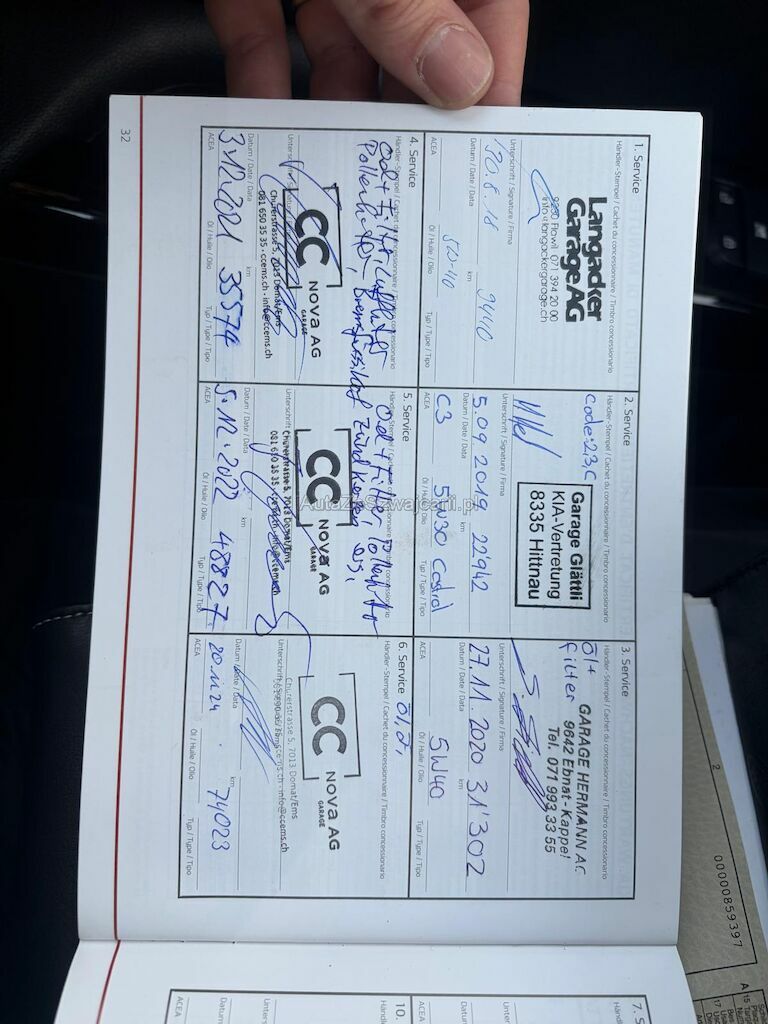 1. Service
Händler-Stempel / Cachet du concessionnaire / Timbro concessionario
Langacker
Garage AG
9230 Flawil 071 394 20 00
info@langackergarage.ch
Unterschrift / Signature / Firma
30.8.18 9440
Datum / Date / Data km
5W-40
ACEA Öl / Huile / Olio Typ / Type / Tipo
2. Service
Händler-Stempel / Cachet du concessionnaire / Timbro concessionario
Code: 2,3,C
Garage Glättli
KIA-Vertretung
8335 Hittnau
Unterschrift / Signature / Firma
5.09 2019 22'942
Datum / Date / Data km
C3 5W30 Castrol
ACEA Öl / Huile / Olio Typ / Type / Tipo
3. Service
Händler-Stempel / Cachet du concessionnaire / Timbro concessionario
Öl+
Filter
GARAGE HERMANN AG
9642 Ebnat-Kappel
Tel. 071 993 33 55
Unterschrift / Signature / Firma
27.11.2020 31'302
Datum / Date / Data km
5W40
ACEA Öl / Huile / Olio Typ / Type / Tipo
4. Service
Händler-Stempel / Cachet du concessionnaire / Timbro concessionario
Oel + Filter, Luftfilter
Pollenfilter, Bremsflüssigkeit Zündkerzen
CC
NOVA AG
GARAGE
Churerstrasse 5, 7013 Domat/Ems
081 650 35 35 · ccems.ch · info@ccems.ch
Unterschrift / Signature / Firma
Datum / Date / Data km
3.12.2021 35574
ACEA Öl / Huile / Olio Typ / Type / Tipo
5. Service
Händler-Stempel / Cachet du concessionnaire / Timbro concessionario
Oel + Filter, Pollenfilter
CC
NOVA AG
GARAGE
Churerstrasse 5, 7013 Domat/Ems
081 650 35 35 · ccems.ch · info@ccems.ch
Unterschrift / Signature / Firma
Datum / Date / Data km
5.12.2022 48827
ACEA Öl / Huile / Olio Typ / Type / Tipo
6. Service
Händler-Stempel / Cachet du concessionnaire / Timbro concessionario
CC
NOVA AG
GARAGE
Churerstrasse 5, 7013 Domat/Ems
081 650 35 35 · ccems.ch · info@ccems.ch
Unterschrift / Signature / Firma
Datum / Date / Data km
20.11.24 74023
ACEA Öl / Huile / Olio Typ / Type / Tipo
32
7. S
Händl
10.
Händl
Unter
Datum
ACEA
AutaZeSzwajcarii.pl
2
00000859397